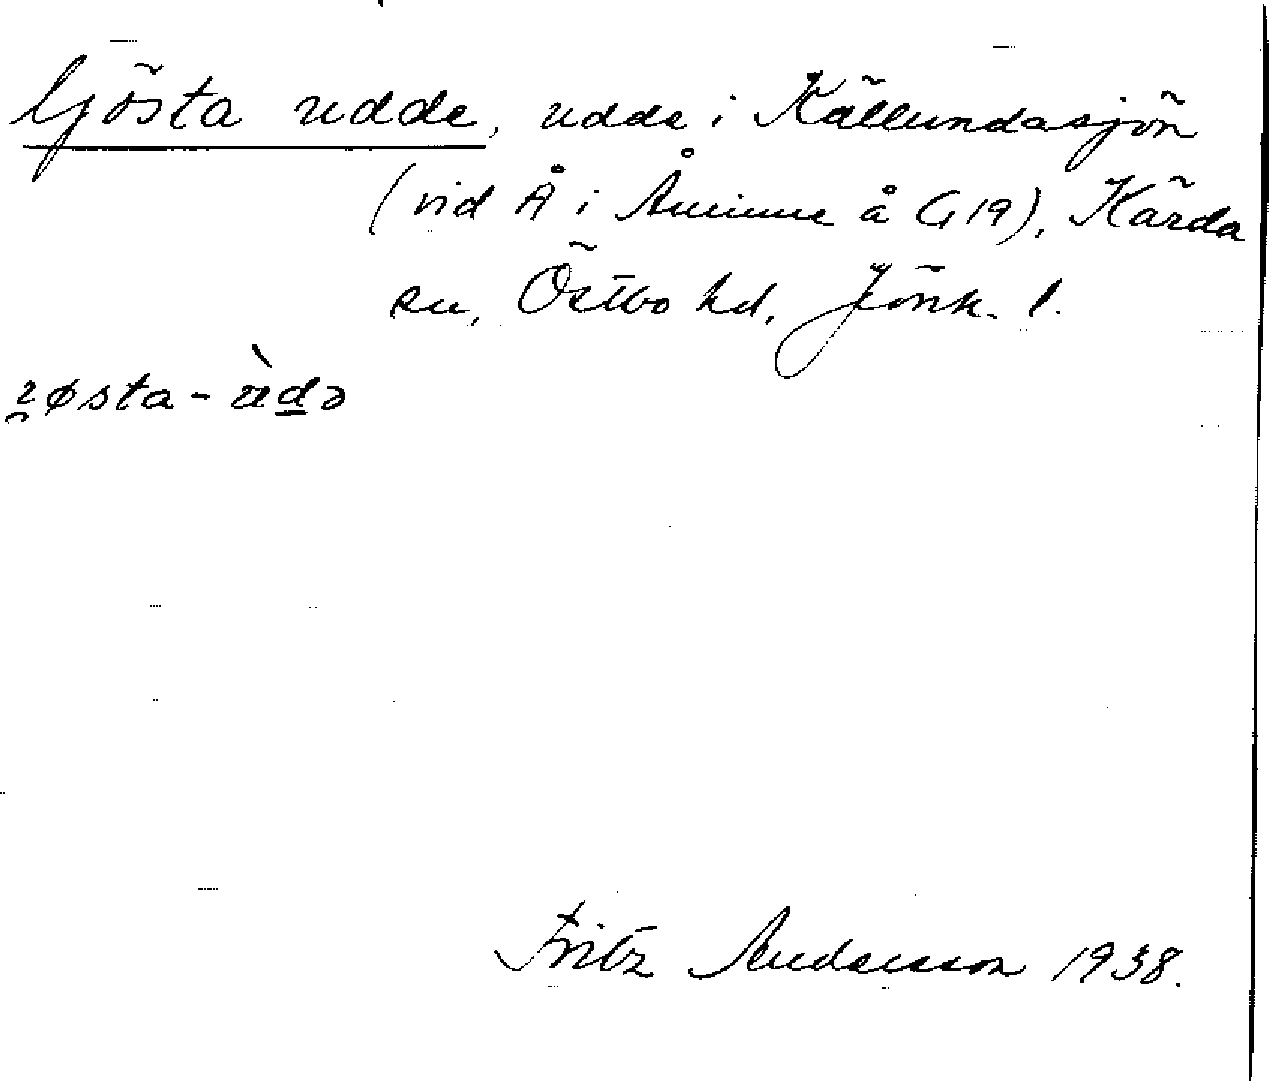 Gösta udde, udde i Källundasjön
(vid Å i Åminne å G 19), Kärda
sn, Östbo hd, Jönk. l.
Fritz Andersson 1938.